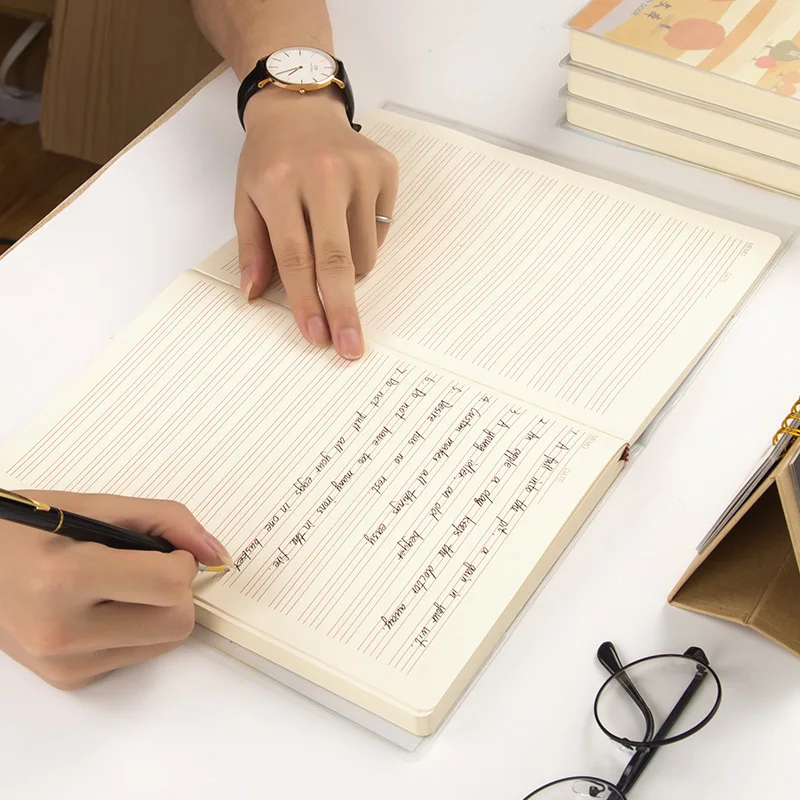 MEMO
DATE
MEMO
DATE
1. A fall into the pit, a gain in your wit.
2. An apple a day keeps the doctor away.
3. A young idler, an old beggar
4. Custom makes all things easy
5. Desire has no rest
6. Do not have too many irons in the fire.
7. Do not pull all your eggs in one busket